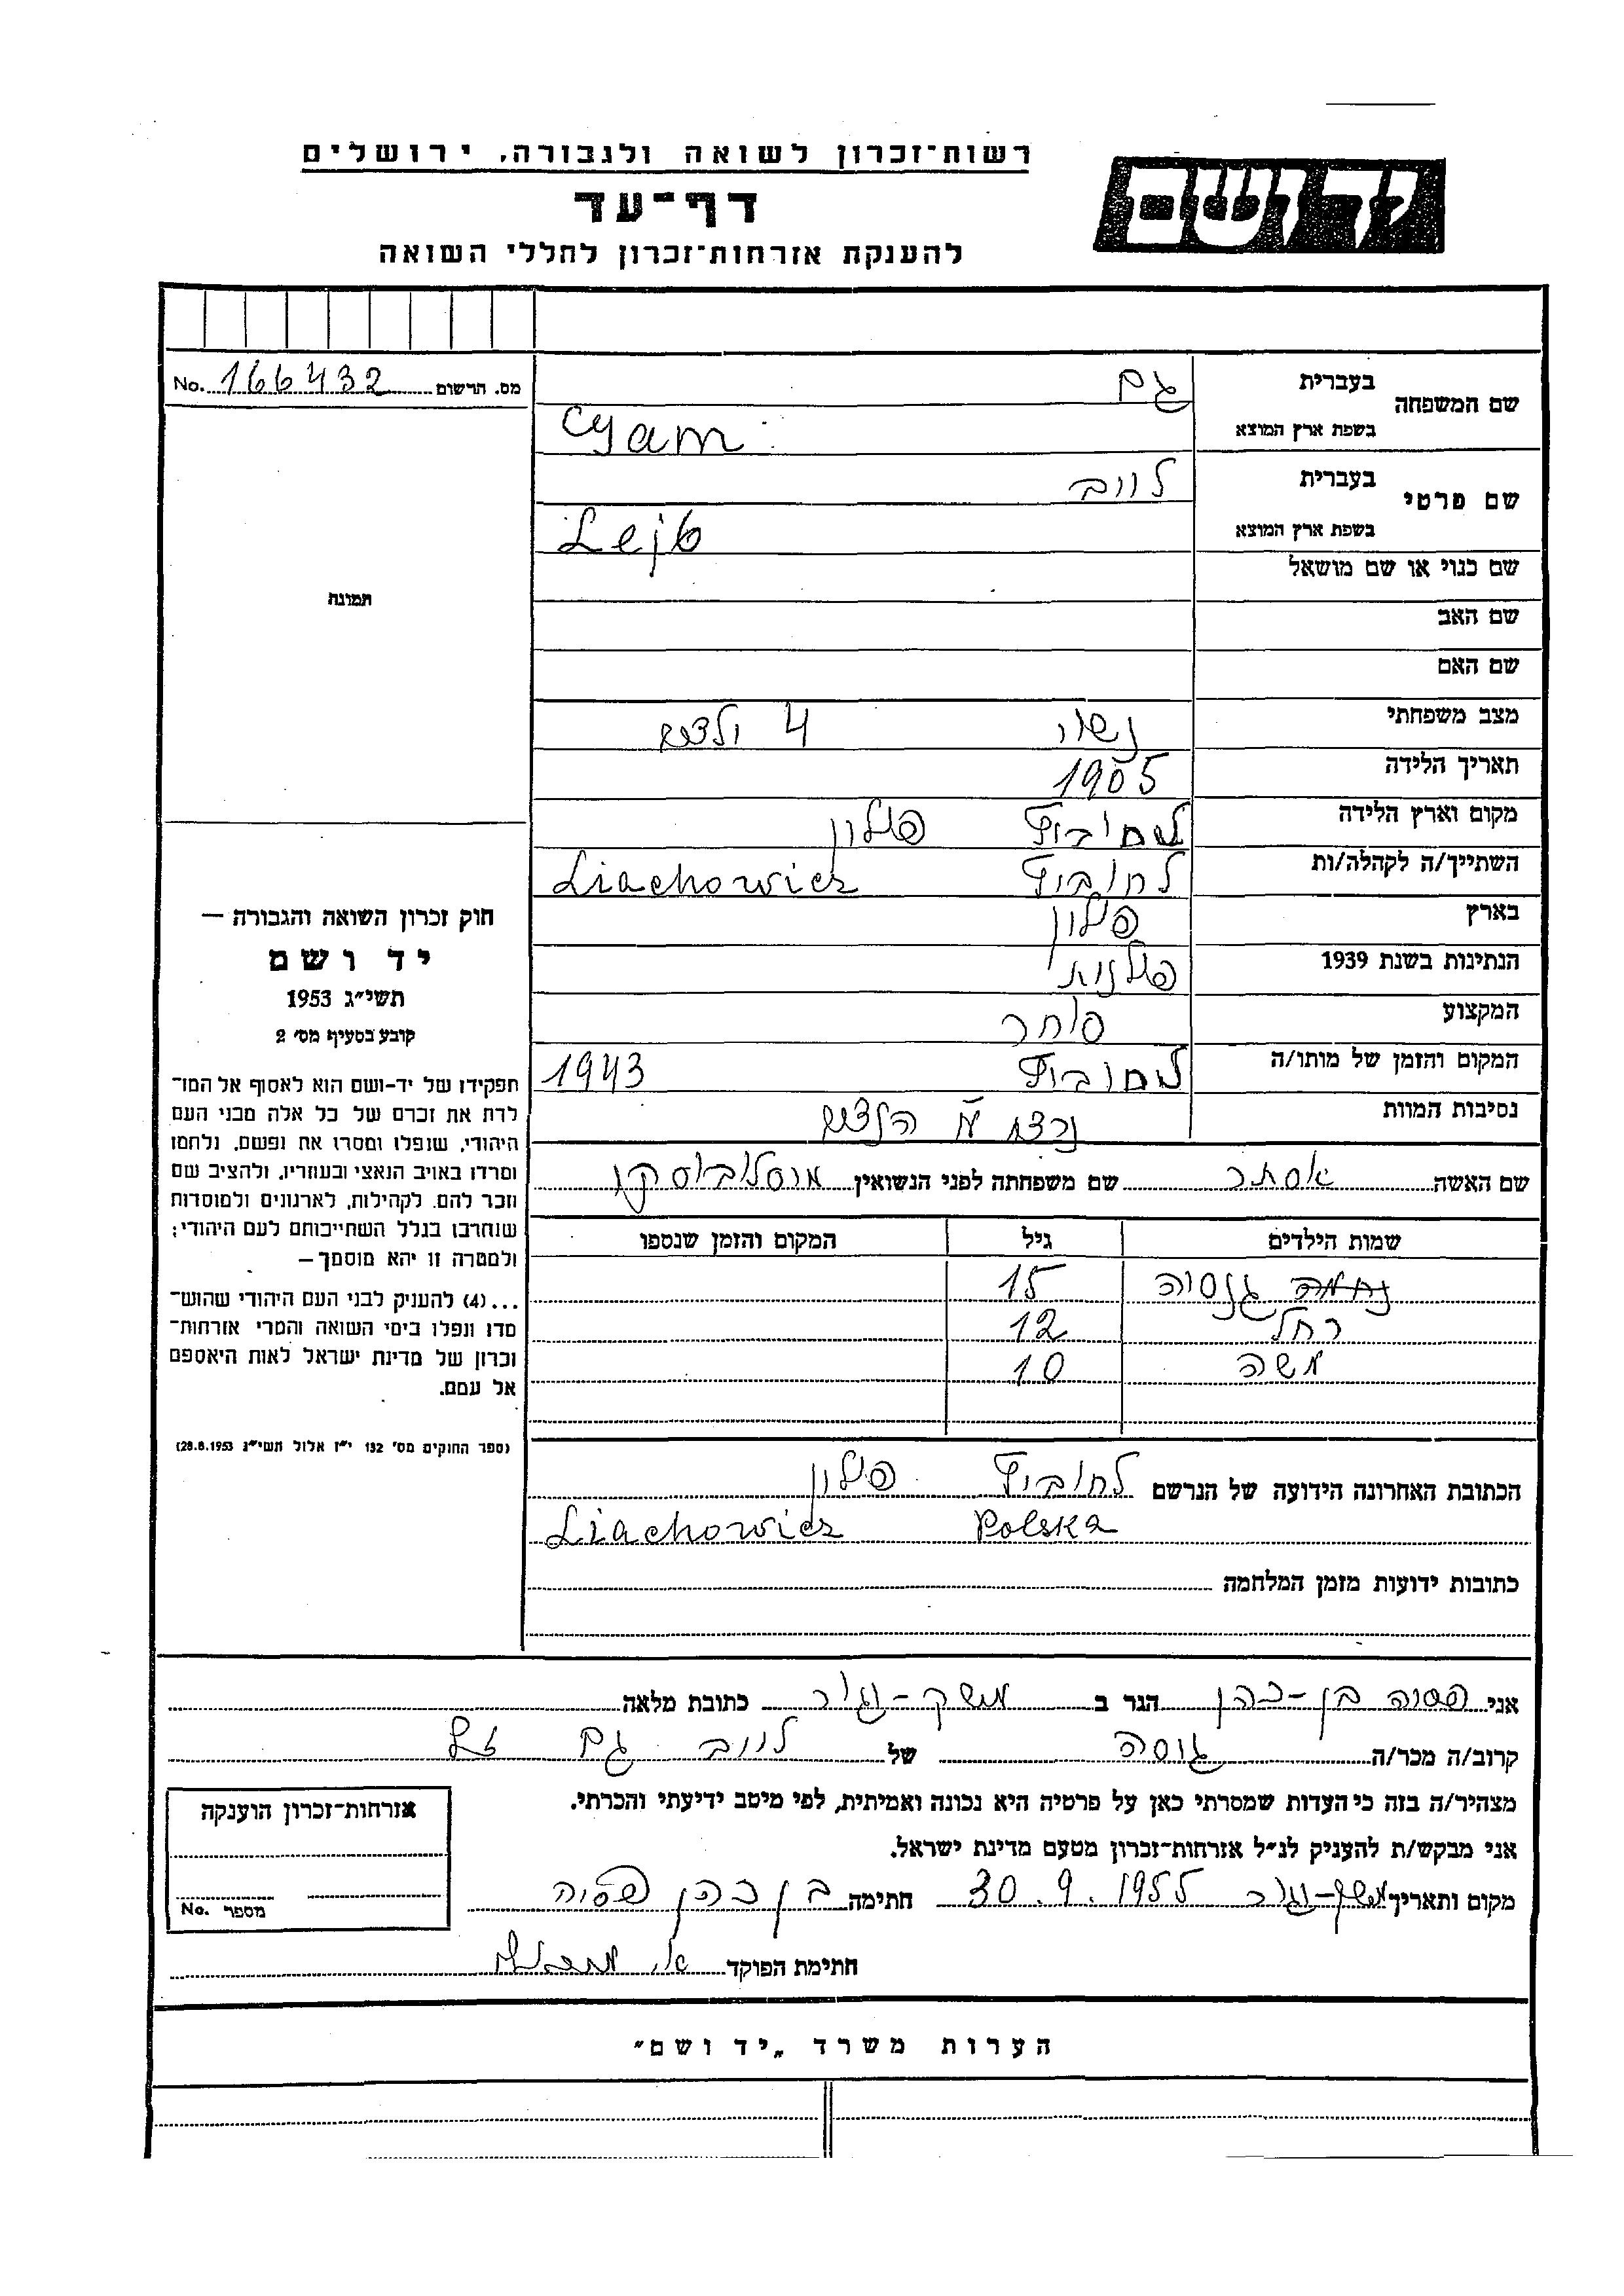 רשות־זכרון לשואה ולגבורה, ירושלים
דף־עד
להענקת אזרחות־זכרון לחללי השואה
יד ושם
מס. הרשום 166432 No.
שם המשפחה
בעברית גם
בשפת ארץ המוצא Cyam
שם פרטי
בעברית לייב
בשפת ארץ המוצא Lejb
שם כנוי או שם מושאל
שם האב
שם האם
מצב משפחתי נשוי 4 ילדים
תאריך הלידה 1905
מקום וארץ הלידה לחוביץ פולין
השתייך/ה לקהלה/ות לחוביץ Liachowicz
בארץ פולין
הנתינות בשנת 1939 פולנית
המקצוע סוחר
המקום והזמן של מותו/ה לחוביץ 1943
נסיבות המוות נרצח ע"י הנאצים
שם האשה אסתר שם משפחתה לפני הנשואין
שמות הילדים גיל המקום והזמן שנספו
15
רחל 12
משה 10
הכתובת האחרונה הידועה של הנרשם לחוביץ פולין
Liachowicz Polska
כתובות ידועות מזמן המלחמה
תמונה
חוק זכרון השואה והגבורה —
יד ושם
תשי״ג 1953
קובע בסעיף מס׳ 2
תפקידו של יד-ושם הוא לאסוף אל המו־
לדת את זכרם של כל אלה מבני העם
היהודי, שנפלו ומסרו את נפשם, נלחמו
ומרדו באויב הנאצי ובעוזריו, ולהציב שם
וזכר להם, לקהילות, לארגונים ולמוסדות
שנחרבו בגלל השתייכותם לעם היהודי;
ולמטרה זו יהא מוסמך —
...(4) להעניק לבני העם היהודי שהוש־
מדו ונפלו בימי השואה והמרי אזרחות־
זכרון של מדינת ישראל לאות היאספם
אל עמם.
(ספר החוקים מס׳ 132 י״ז אלול תשי״ג 28.8.1953)
אני פסיה בן-כהן הגר ב כתובת מלאה
קרוב/ה מכר/ה גיסה של לייב גם ז"ל
מצהיר/ה בזה כי העדות שמסרתי כאן על פרטיה היא נכונה ואמיתית, לפי מיטב ידיעתי והכרתי.
אני מבקש/ת להעניק לנ״ל אזרחות־זכרון מטעם מדינת ישראל.
מקום ותאריך 30.9.1955 חתימה בן כהן פסיה
חתימת הפוקד
אזרחות־זכרון הוענקה
מספר No.
הערות משרד „יד ושם״